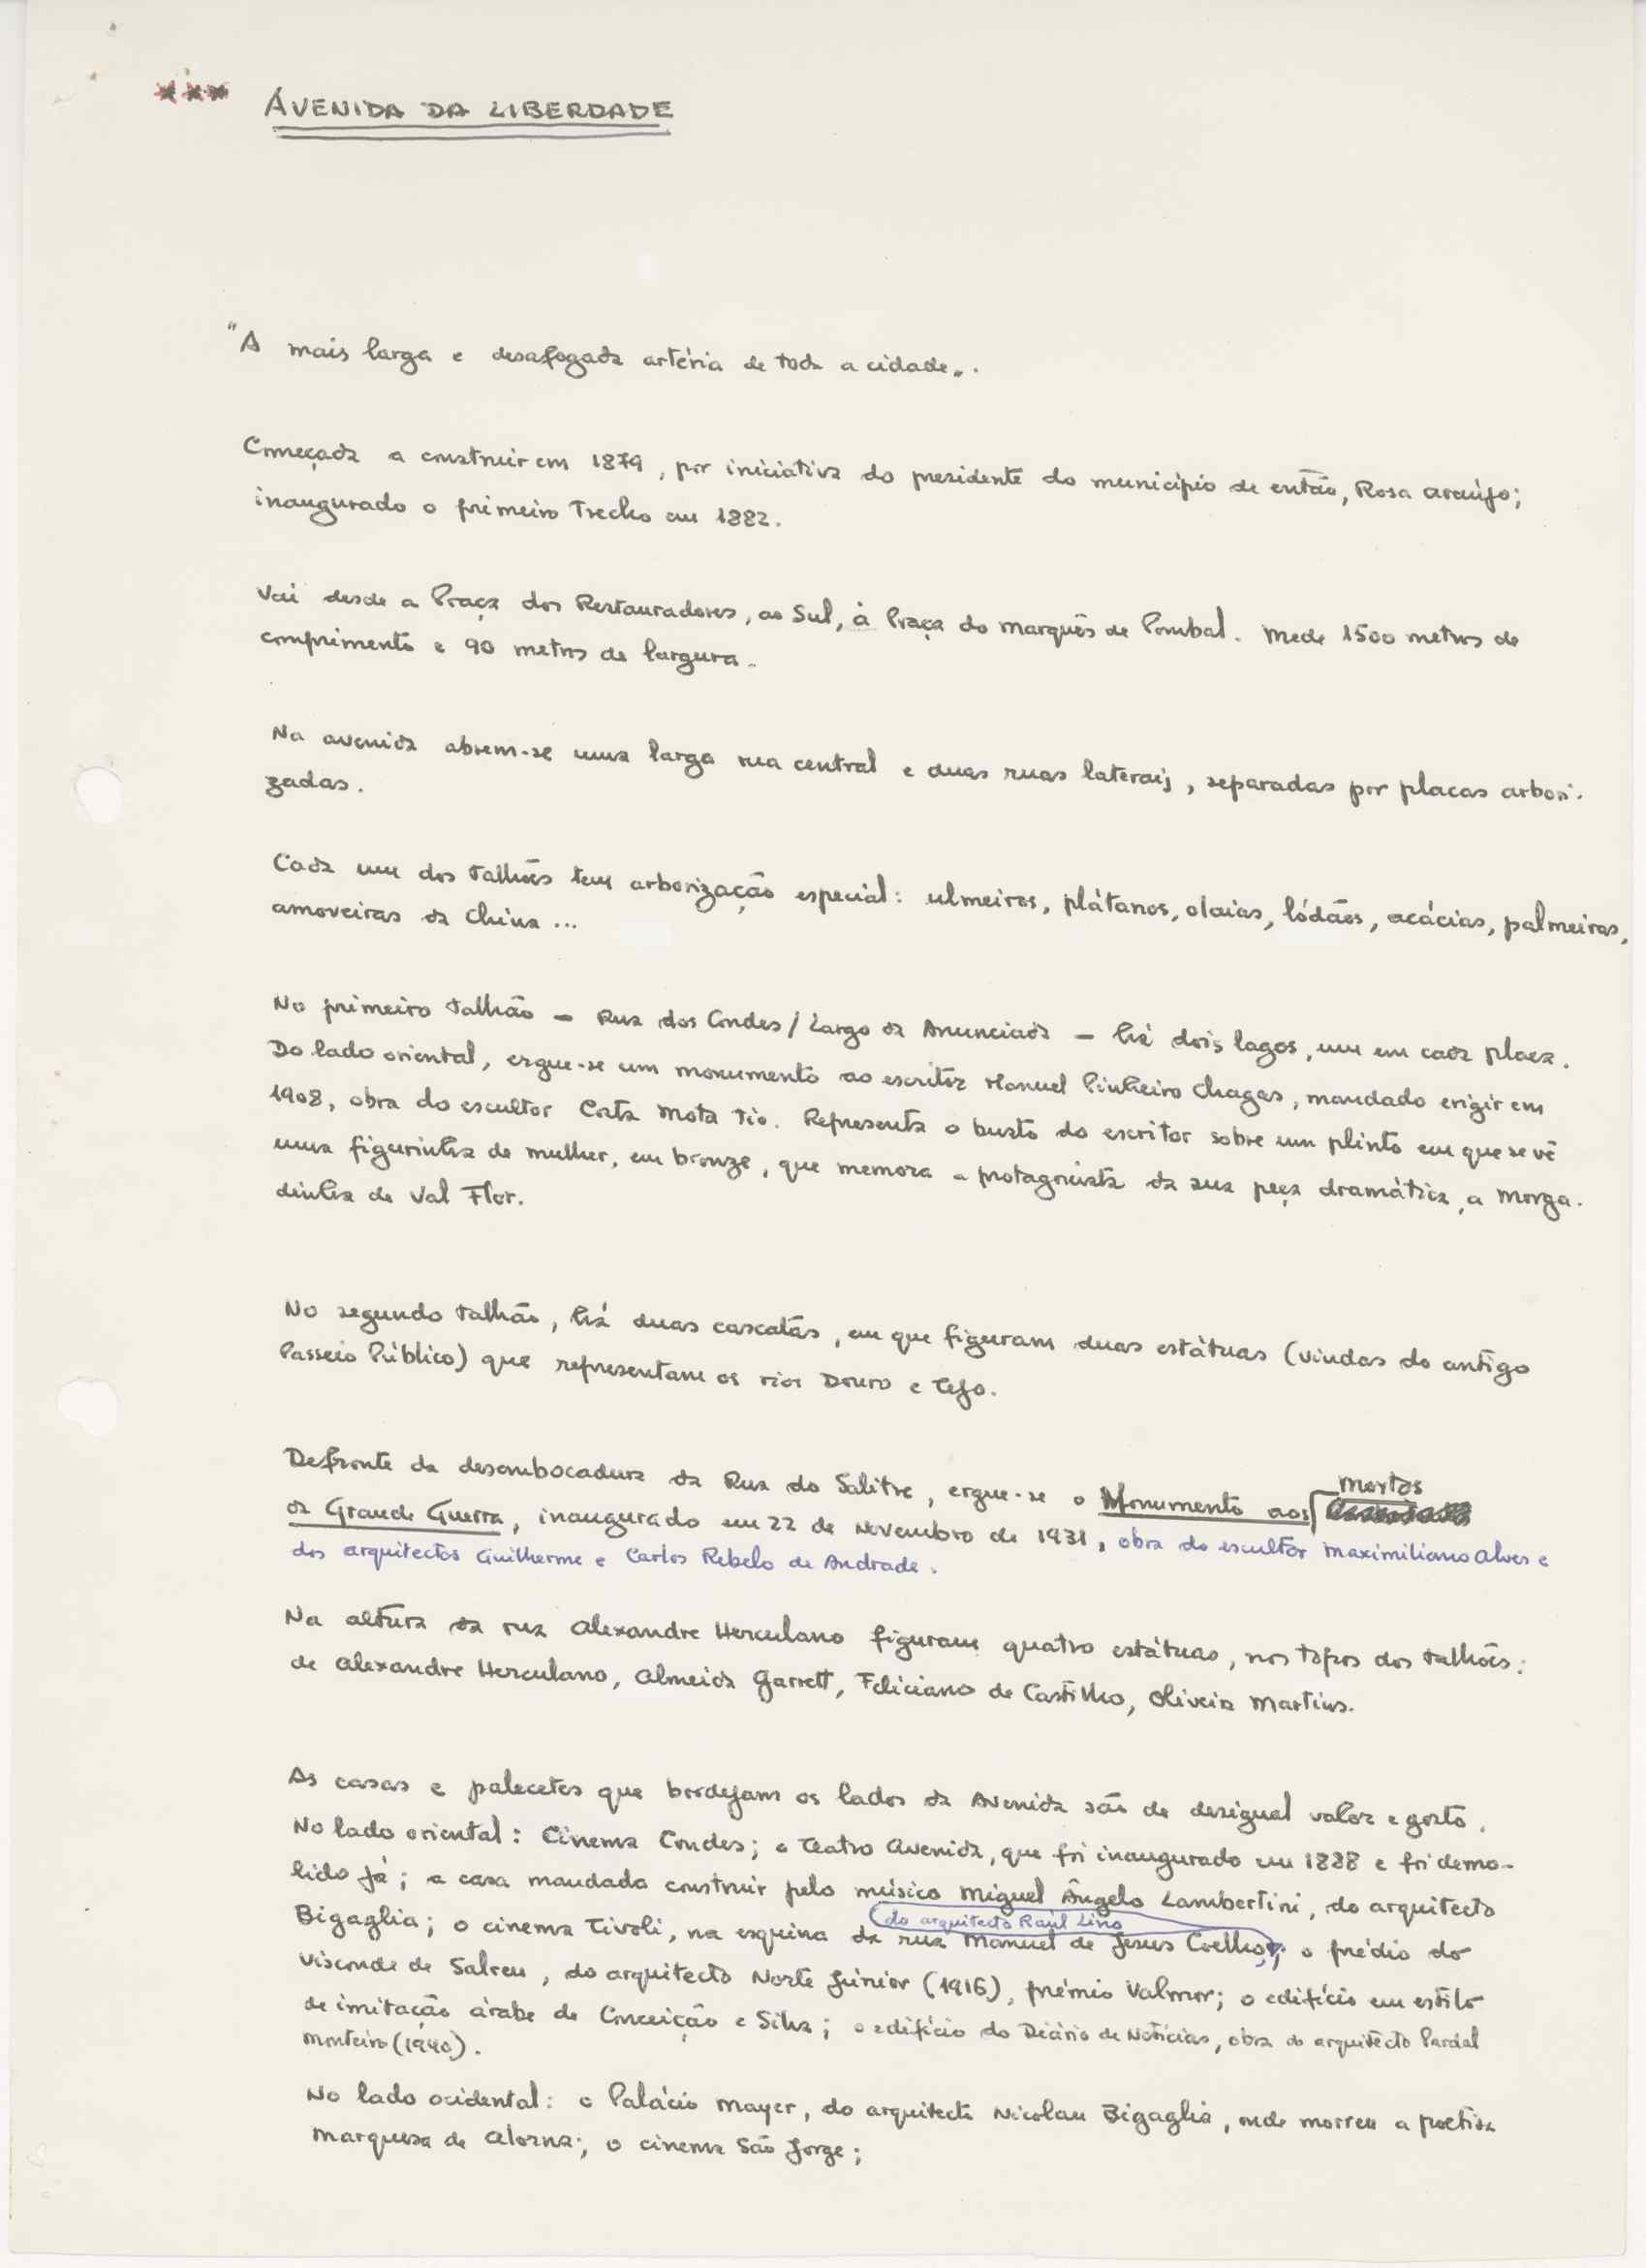 *** AVENIDA DA LIBERDADE
"A mais larga e desafogada artéria de toda a cidade".
Começada a construir em 1879, por iniciativa do presidente do município de então, Rosa Araújo;
inaugurado o primeiro trecho em 1882.
Vai desde a Praça dos Restauradores, ao Sul, à Praça do Marquês de Pombal. Mede 1500 metros de
comprimento e 90 metros de largura.
Na avenida abrem-se uma larga rua central e duas ruas laterais, separadas por placas arbori-
zadas.
Cada um dos talhões tem arborização especial: ulmeiros, plátanos, olaias, lódãos, acácias, palmeiras,
amoreiras da China...
No primeiro talhão - Rua dos Condes/Largo da Anunciada - há dois lagos, um em cada placa.
Do lado oriental, ergue-se um monumento ao escritor Manuel Pinheiro Chagas, mandado erigir em
1908, obra do escultor Costa Mota Tio. Representa o busto do escritor sobre um plinto em que se vê
uma figurinha de mulher, em bronze, que memora a protagonista da sua peça dramática, a Morga-
dinha de Val Flor.
No segundo talhão, há duas cascatas, em que figuram duas estátuas (vindas do antigo
Passeio Público) que representam os rios Douro e Tejo.
Defronte da desembocadura da Rua do Salitre, ergue-se o Monumento aos mortos
da Grande Guerra, inaugurado em 22 de Novembro de 1931, obra do escultor Maximiliano Alves e
dos arquitectos Guilherme e Carlos Rebelo de Andrade.
Na altura da rua Alexandre Herculano figuram quatro estátuas, nos topos dos talhões:
de Alexandre Herculano, Almeida Garrett, Feliciano de Castilho, Oliveira Martins.
As casas e palecetes que bordejam os lados da Avenida são de desigual valor e gosto.
No lado oriental: Cinema Condes; o Teatro Avenida, que foi inaugurado em 1888 e foi demo-
lido já; a casa mandada construir pelo músico Miguel Ângelo Lambertini, do arquitecto
Bigaglia; o cinema Tivoli, na esquina da rua Manuel de Jesus Coelho, do arquitecto Raúl Lino; o prédio do
Visconde de Salreu, do arquitecto Norte Júnior (1916), prémio Valmor; o edifício em estilo
de imitação árabe de Conceição e Silva; o edifício do Diário de Notícias, obra do arquitecto Pardal
Monteiro (1940).
No lado ocidental: o Palácio Mayer, do arquitecto Nicolau Bigaglia, onde morreu a poetisa
Marquesa de Alorna; o cinema São Jorge;